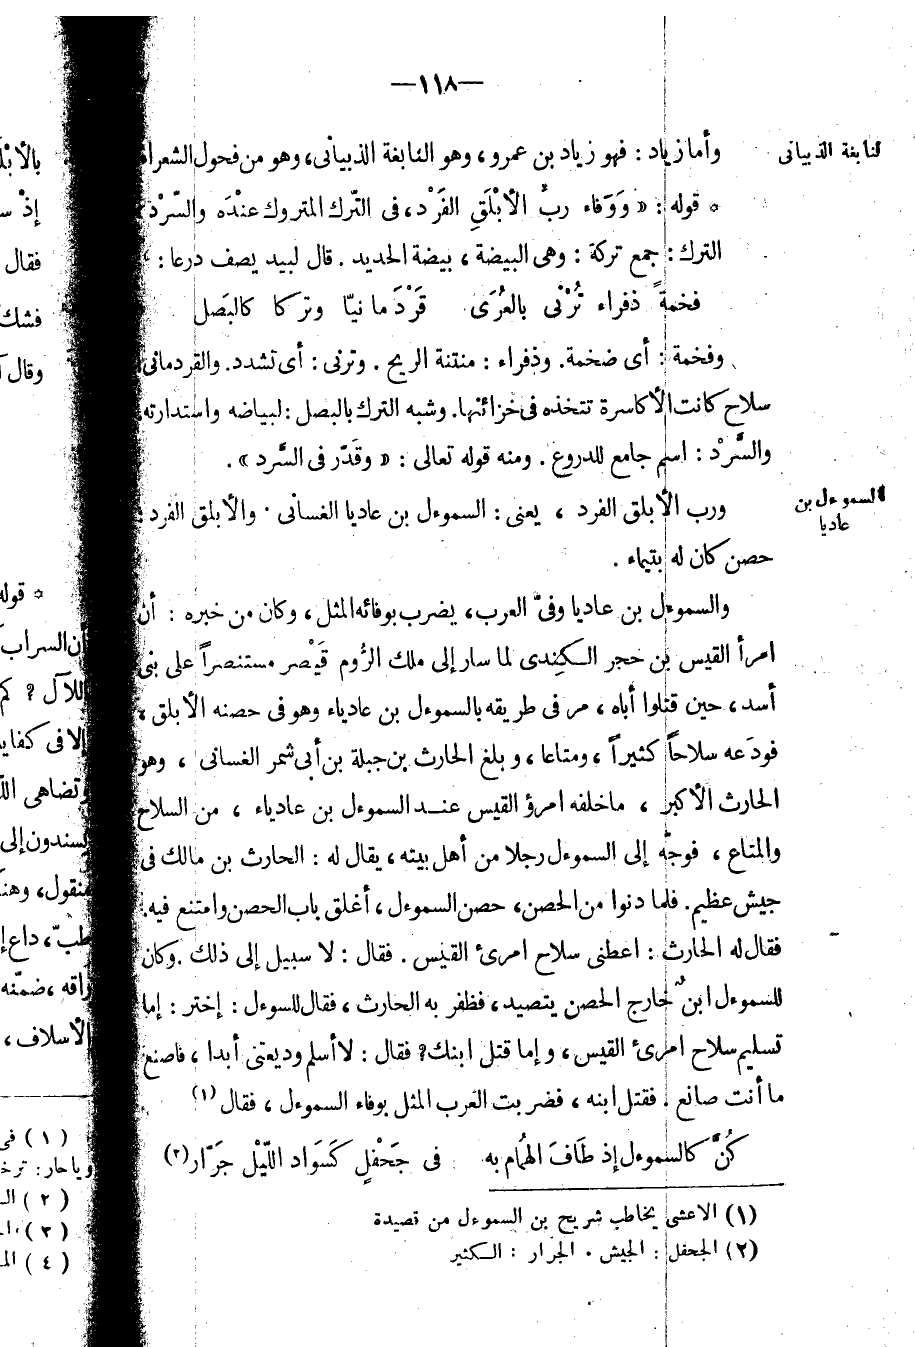 —١١٨—
وأما زياد : فهو زياد بن عمرو ، وهو النابغة الذبيانى ، وهو من فحول الشعراء
النابغة الذبيانى
* قوله : « وَوَفاء ربُّ الأبْلَقِ الفَرْد ، فى التّرك المتروك عنده والسّرْد
الترك : جمع تركة : وهى البيضة ، بيضة الحديد . قال لبيد يصف درعا :
فخمةً ذفراء تُرْتى بالعُرَى قَرْدَمانيّا وتركا كالبَصل
وفخمة : أى ضخمة . وذفراء : منتنة الريح . وترتى : أى تشدد . والقردمانى
سلاح كانت الأكاسرة تتخذه فى خزائنها . وشبه الترك بالبصل : لبياضه واستدارته
والسَّرْد : اسم جامع للدروع . ومنه قوله تعالى : « وقَدّر فى السَّرد » .
ورب الأبلق الفرد ، يعنى : السموءل بن عاديا الغسانى . والأبلق الفرد :
السموءل بن
عاديا
حصن كان له بتيماء .
والسموءل بن عاديا وفىّ العرب ، يضرب بوفائه المثل ، وكان من خبره : أن
امرأ القيس بن حجر الكِندى لما سار إلى ملك الرُّوم قَيْصر مستنصراً على بنى
أسد ، حين قتلوا أباه ، مر فى طريقه بالسموءل بن عادياء وهو فى حصنه الأبلق ،
فودَعه سلاحاً كثيراً ، ومتاعا ، وبلغ الحارث بن جبلة بن أبى شمر الغسانى ، وهو
الحارث الأكبر ، ماخلفه امرؤ القيس عند السموءل بن عادياء ، من السلاح
والمتاع ، فوجّه إلى السموءل رجلا من أهل بيته ، يقال له : الحارث بن مالك فى
جيش عظيم . فلما دنوا من الحصن ، حصن السموءل ، أغلق باب الحصن وامتنع فيه .
فقال له الحارث : اعطنى سلاح امرئ القيس . فقال : لا سبيل إلى ذلك . وكان
للسموءل ابنٌ خارج الحصن يتصيد ، فظفر به الحارث ، فقال للسوءل : إختر : إما
تسليم سلاح امرئ القيس ، وإما قتل ابنك ؟ فقال : لا أسلم وديعتى أبدا ، فاصنع
ما أنت صانع . فقتل ابنه ، فضربت العرب المثل بوفاء السموءل ، فقال (١)
كُنْ كالسموءل إذ طَافَ الهُمام به فى جَحْفلٍ كَسَوَاد اللّيْل جَرّار (٢)
(١) الاعشى يخاطب شريح بن السموءل من قصيدة
(٢) الجحفل : الجيش . الجرار : الكثير
إذْ
فقال
وقال
* قوله
أن السراب
للآل ؟ كم
وتضاهى
يسندون إلى
فنقول ، وهذ
طبّ ، داع
راقه ، ضمّنه
الأسلاف ،
(١) فى
(٢)
(٣)
(٤)